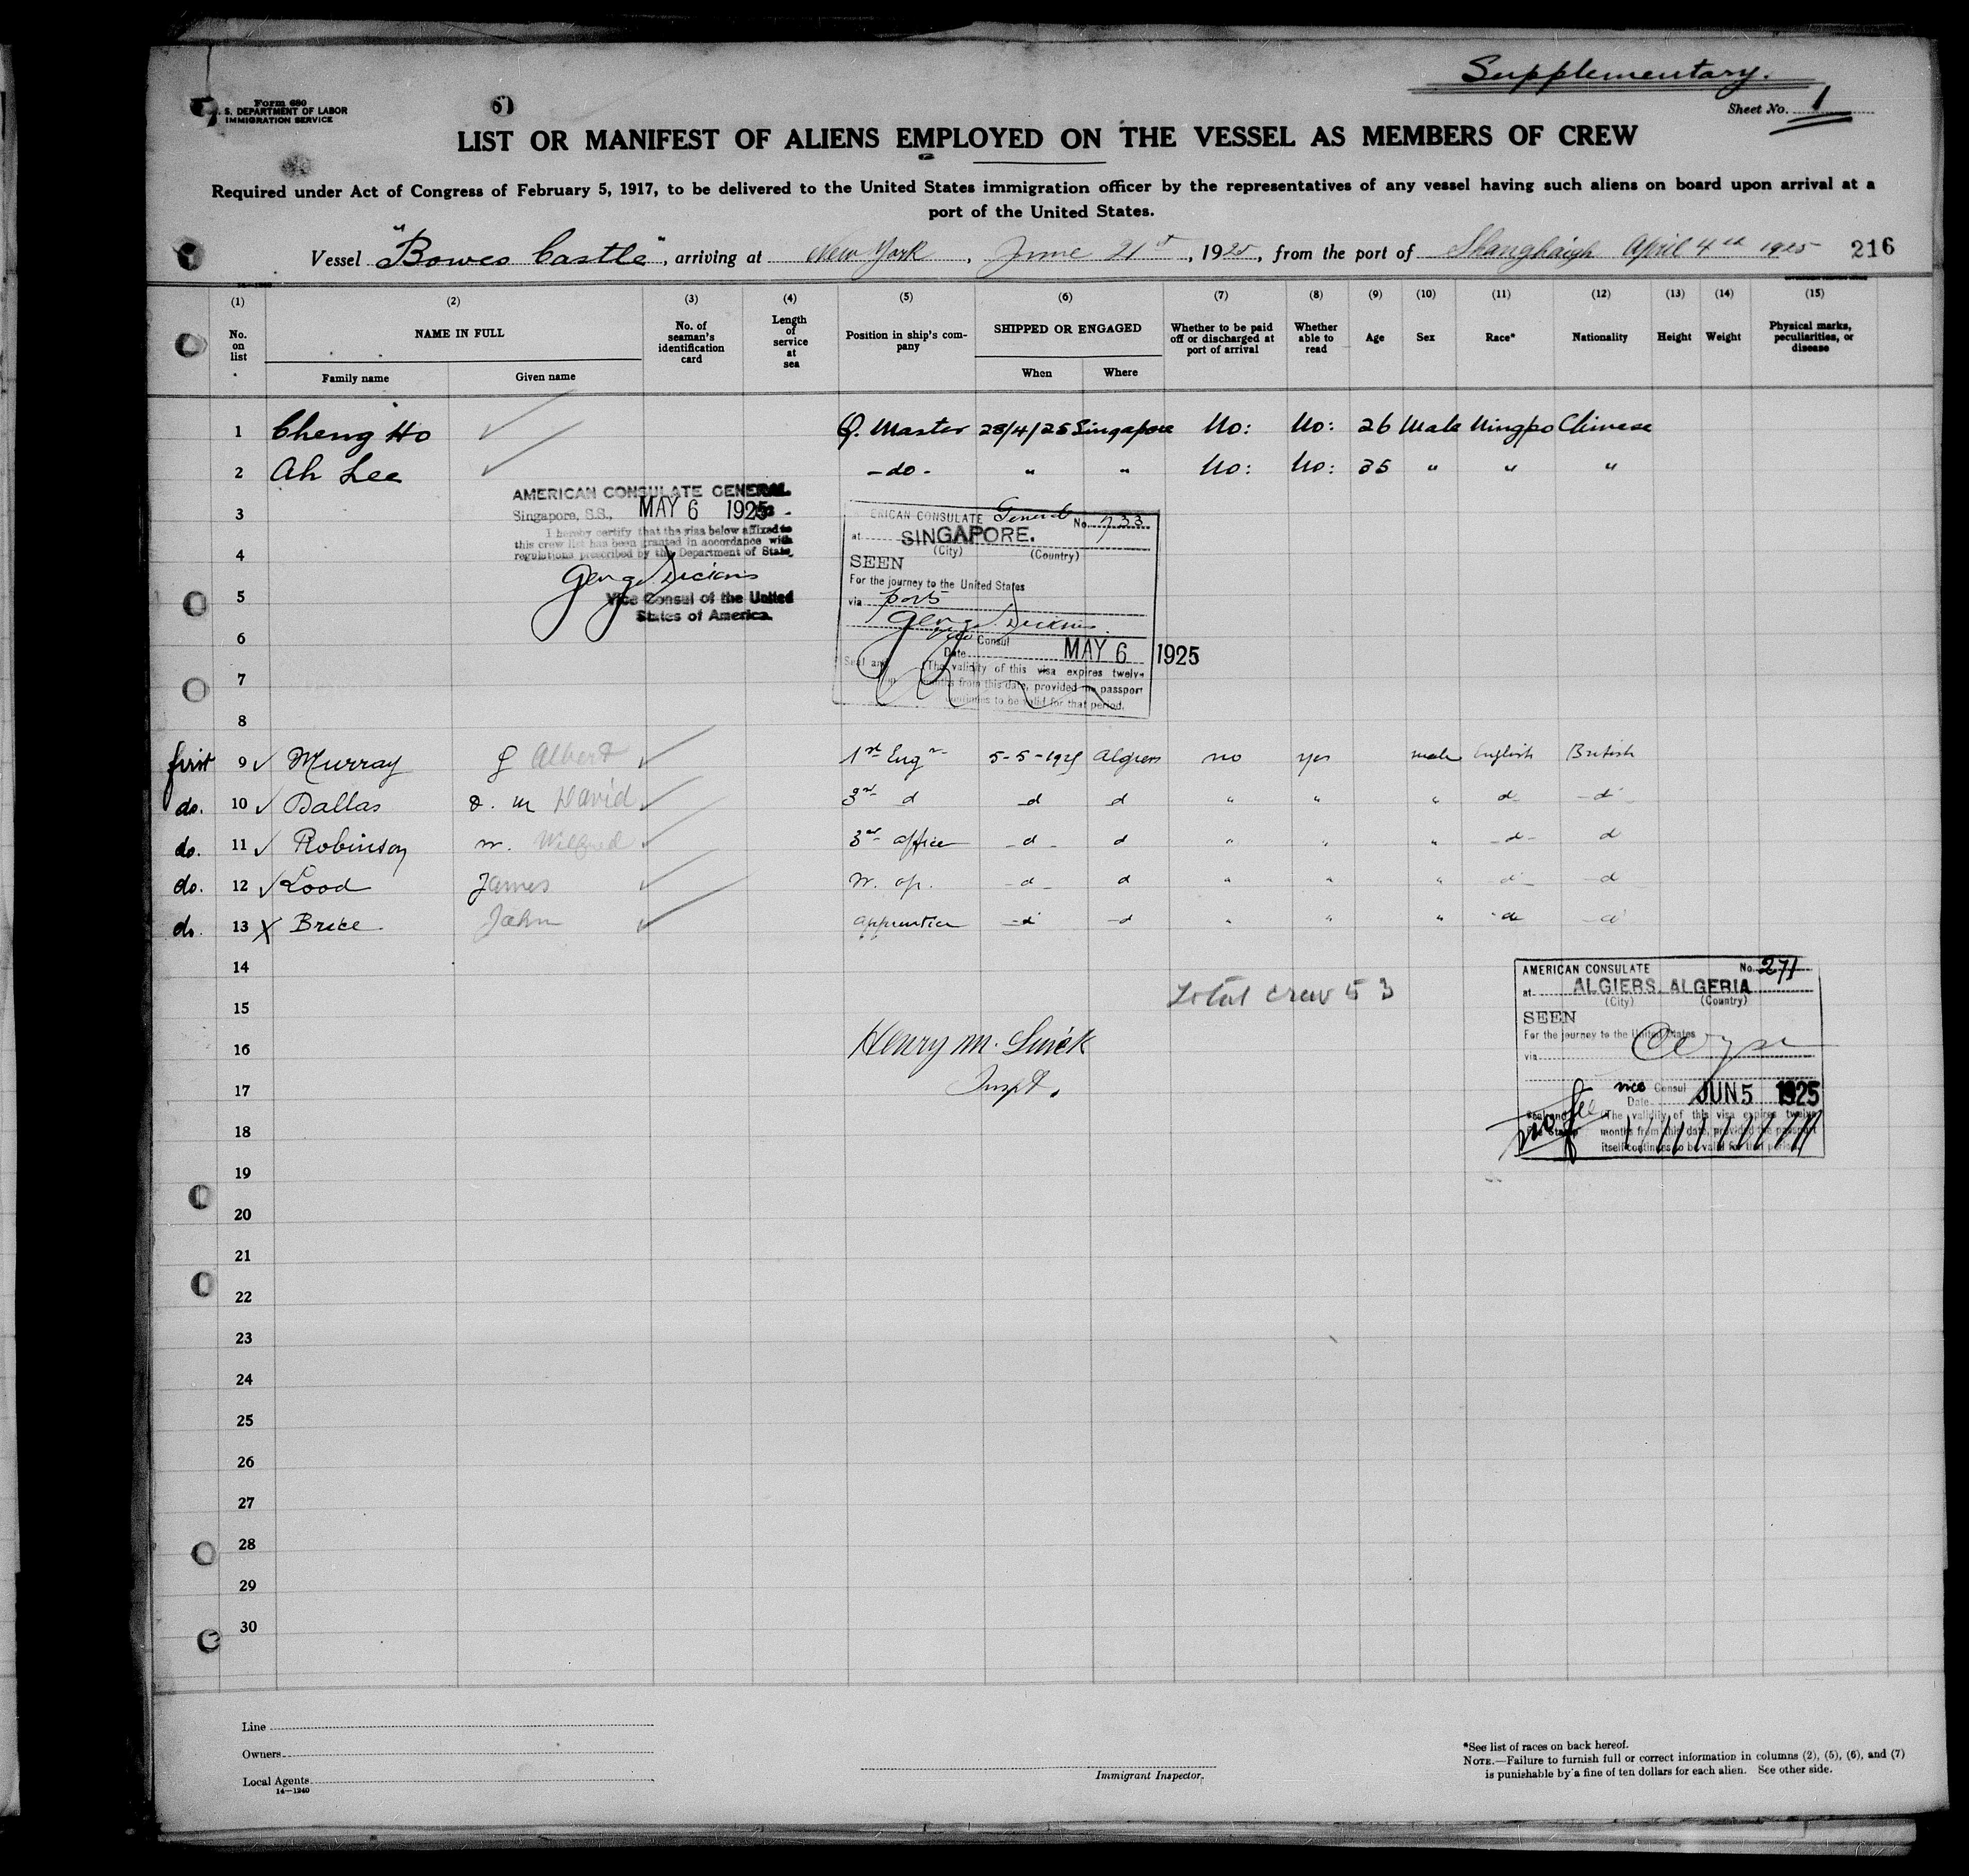 Supplementary.
Form 680
U. S. DEPARTMENT OF LABOR
IMMIGRATION SERVICE
Sheet No. 1
LIST OR MANIFEST OF ALIENS EMPLOYED ON THE VESSEL AS MEMBERS OF CREW
Required under Act of Congress of February 5, 1917, to be delivered to the United States immigration officer by the representatives of any vessel having such aliens on board upon arrival at a
port of the United States.
Vessel "Bowes Castle", arriving at New York, June 21st, 1925, from the port of Shanghaigh April 4th 1925 216
(1) (2) (3) (4) (5) (6) (7) (8) (9) (10) (11) (12) (13) (14) (15)
No. on list NAME IN FULL No. of seaman's identification card Length of service at sea Position in ship's company SHIPPED OR ENGAGED Whether to be paid off or discharged at port of arrival Whether able to read Age Sex Race* Nationality Height Weight Physical marks, peculiarities, or disease
Family name Given name When Where
1 Cheng Ho Q. Master 28/4/25 Singapore No: No: 26 Male Ningpo Chinese
2 Ah Lee -do- " " No: No: 35 " " "
AMERICAN CONSULATE GENERAL
Singapore, S.S., MAY 6 1925
I hereby certify that the visa below affixed to
this crew list has been granted in accordance with
regulations prescribed by the Department of State.
Vice Consul of the United
States of America.
AMERICAN CONSULATE General No. 733
at SINGAPORE.
(City) (Country)
SEEN
For the journey to the United States
via ports
Vice Consul
Date MAY 6 1925
(The validity of this visa expires twelve
months from this date, provided the passport
continues to be valid for that period.
3
4
5
6
7
8
first 9 Murray G Albert 1st Engr 5-5-1925 Algiers no yes male English British
do. 10 Dallas D. M David 3rd d -d- d " " " d- -d-
do. 11 Robinson W. Wilfred 3rd officer -d- d " " " -d- d
do. 12 Lood James W. op. -d- d " " " -d- -d
do. 13 X Brice John apprentice -d- -d " " " -do -d
14
15 Total crew 53
16 Henry M. Smick
17 Inspt.
AMERICAN CONSULATE No. 271
at ALGIERS, ALGERIA
(City) (Country)
SEEN
For the journey to the United States
via
vice Consul
Date JUN 5 1925
no fee
(The validity of this visa expires twelve
months from this date, provided the passport
itself continues to be valid for that period.
18
19
20
21
22
23
24
25
26
27
28
29
30
Line
Owners
Local Agents
14—1240
Immigrant Inspector.
*See list of races on back hereof.
NOTE.—Failure to furnish full or correct information in columns (2), (5), (6), and (7)
is punishable by a fine of ten dollars for each alien. See other side.